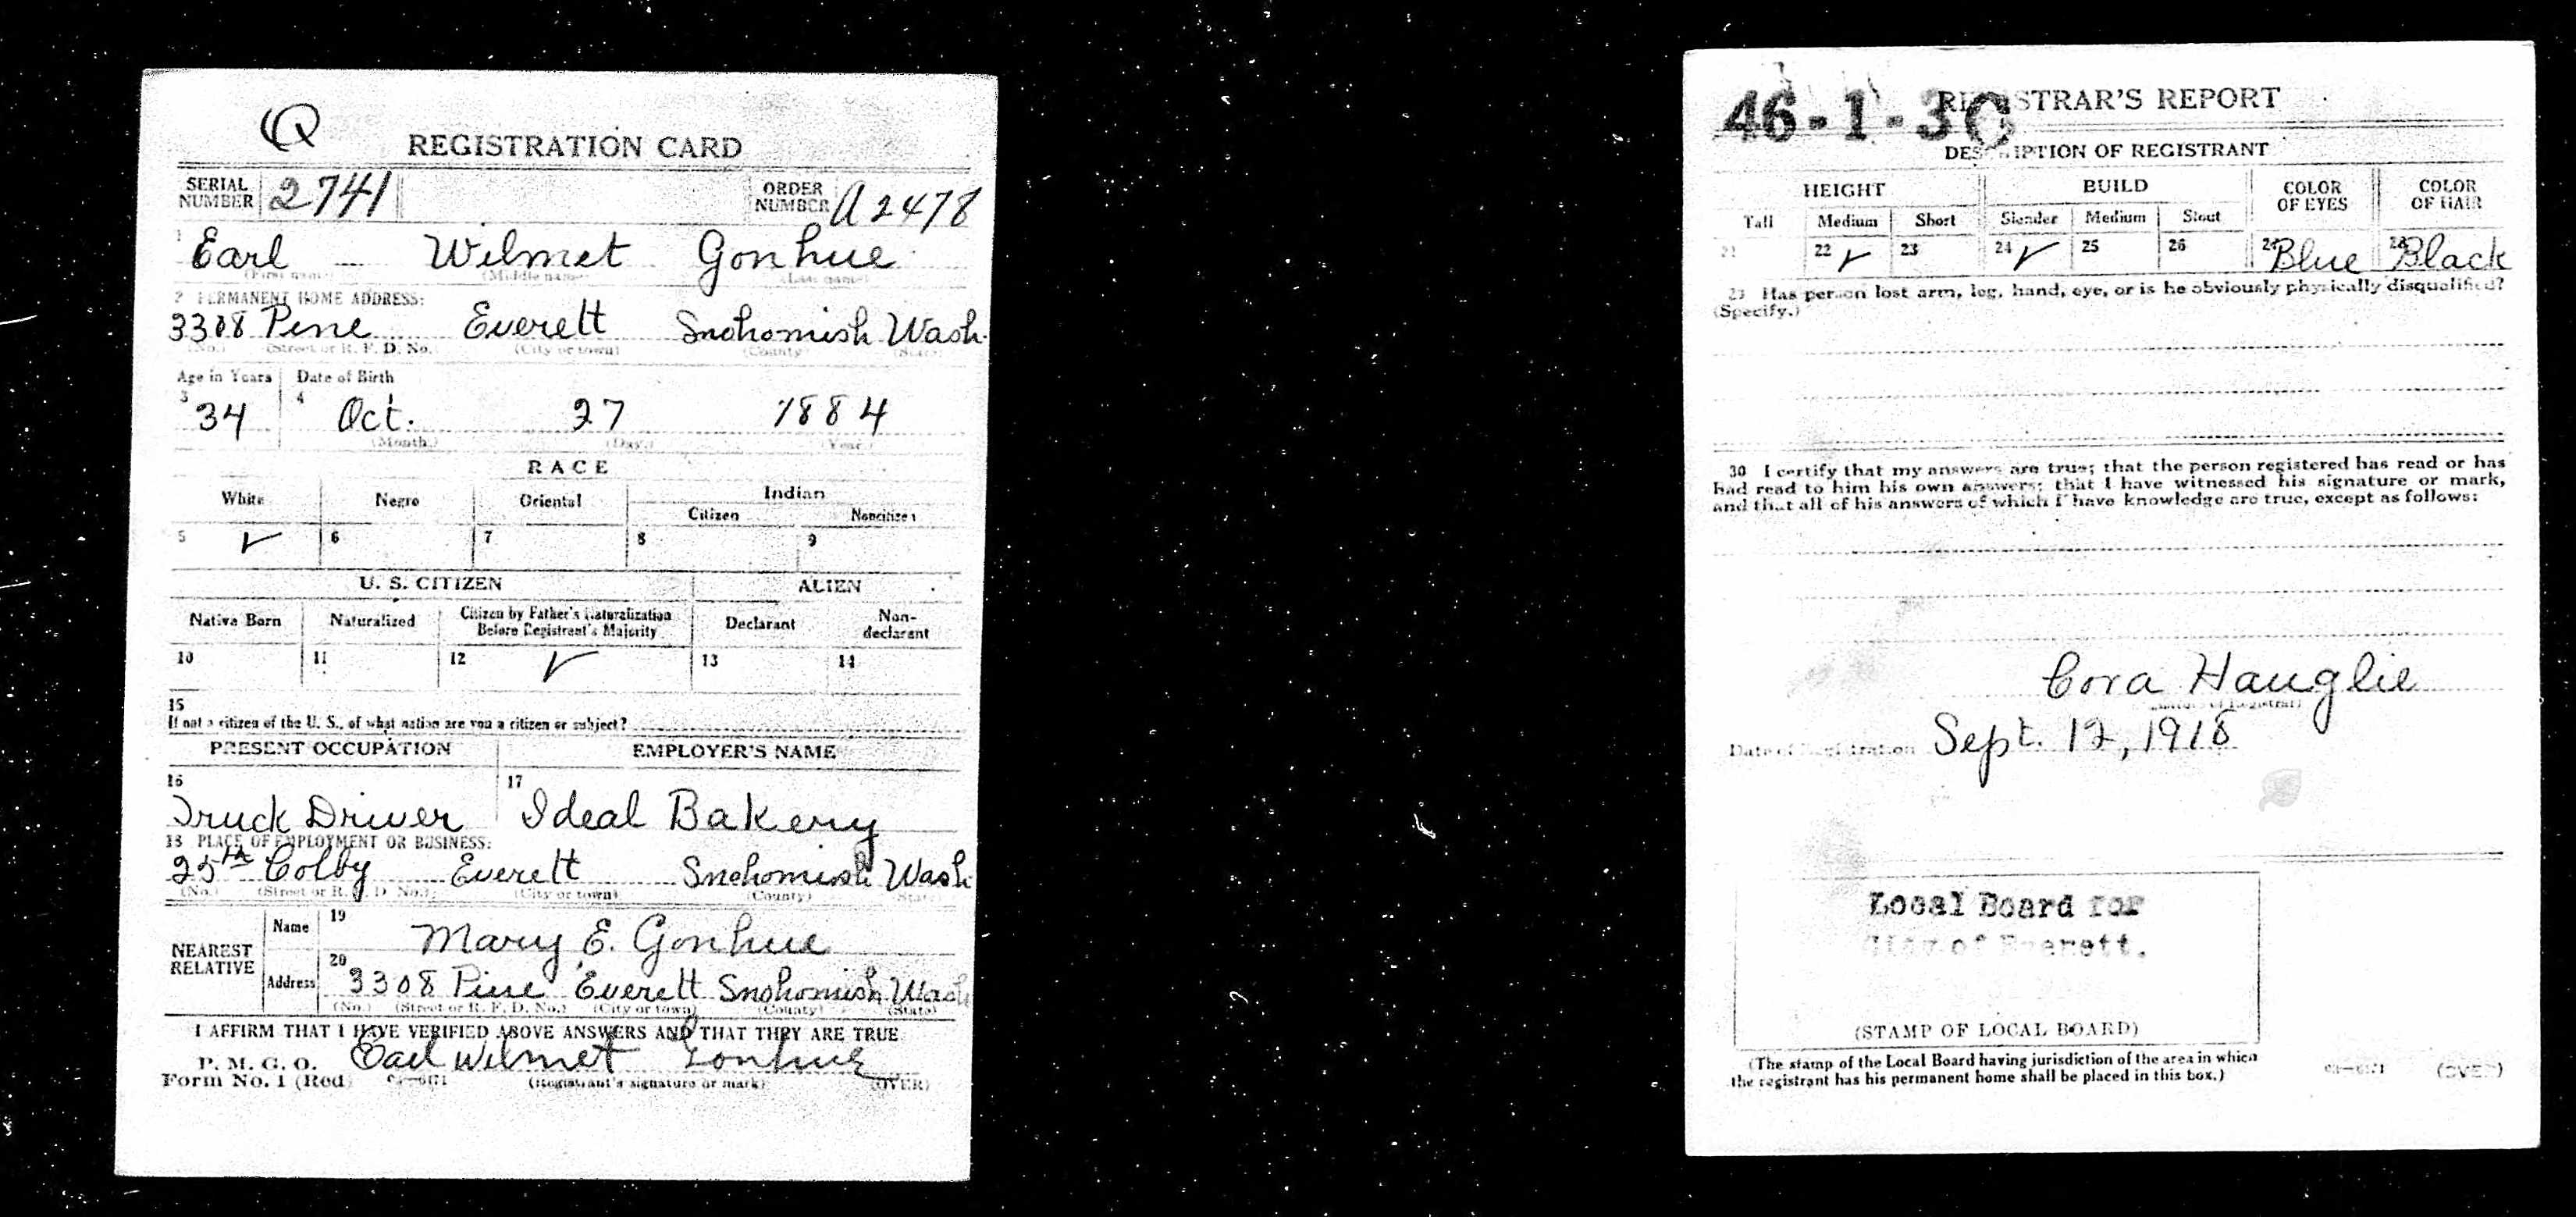 Q
REGISTRATION CARD
SERIAL NUMBER 2741 ORDER NUMBER A2478
1 Earl Wilmet Gonhue
(First name) (Middle name) (Last name)
2 PERMANENT HOME ADDRESS:
3308 Pine Everett Snohomish Wash.
(No.) (Street or R. F. D. No.) (City or town) (County) (State)
Age in Years Date of Birth
3 34 4 Oct. 27 1884
(Month.) (Day.) (Year.)
RACE
White Negro Oriental Indian
Citizen Noncitizen
5 ✓ 6 7 8 9
U. S. CITIZEN ALIEN
Native Born Naturalized Citizen by Father's Naturalization Before Registrant's Majority Declarant Non-declarant
10 11 12 ✓ 13 14
15
If not a citizen of the U. S., of what nation are you a citizen or subject?
PRESENT OCCUPATION EMPLOYER'S NAME
16 Truck Driver 17 Ideal Bakery
18 PLACE OF EMPLOYMENT OR BUSINESS:
25th Colby Everett Snohomish Wash
(No.) (Street or R. F. D. No.) (City or town) (County) (State)
NEAREST RELATIVE
Name 19 Mary E. Gonhue
Address 20 3308 Pine Everett Snohomish Wash
(No.) (Street or R. F. D. No.) (City or town) (County) (State)
I AFFIRM THAT I HAVE VERIFIED ABOVE ANSWERS AND THAT THEY ARE TRUE
P. M. G. O.
Form No. 1 (Red) Earl Wilmet Gonhue
(Registrant's signature or mark) (OVER)
46-1-3 C
REGISTRAR'S REPORT
DESCRIPTION OF REGISTRANT
HEIGHT BUILD COLOR OF EYES COLOR OF HAIR
Tall Medium Short Slender Medium Stout
21 22 ✓ 23 24 ✓ 25 26 27 Blue 28 Black
29 Has person lost arm, leg, hand, eye, or is he obviously physically disqualified?
(Specify.)
30 I certify that my answers are true; that the person registered has read or has
had read to him his own answers; that I have witnessed his signature or mark,
and that all of his answers of which I have knowledge are true, except as follows:
Cora Hauglie
(Signature of Registrar)
Date of Registration Sept. 12, 1918
Local Board for
City of Everett.
(STAMP OF LOCAL BOARD)
(The stamp of the Local Board having jurisdiction of the area in which
the registrant has his permanent home shall be placed in this box.)
(OVER)